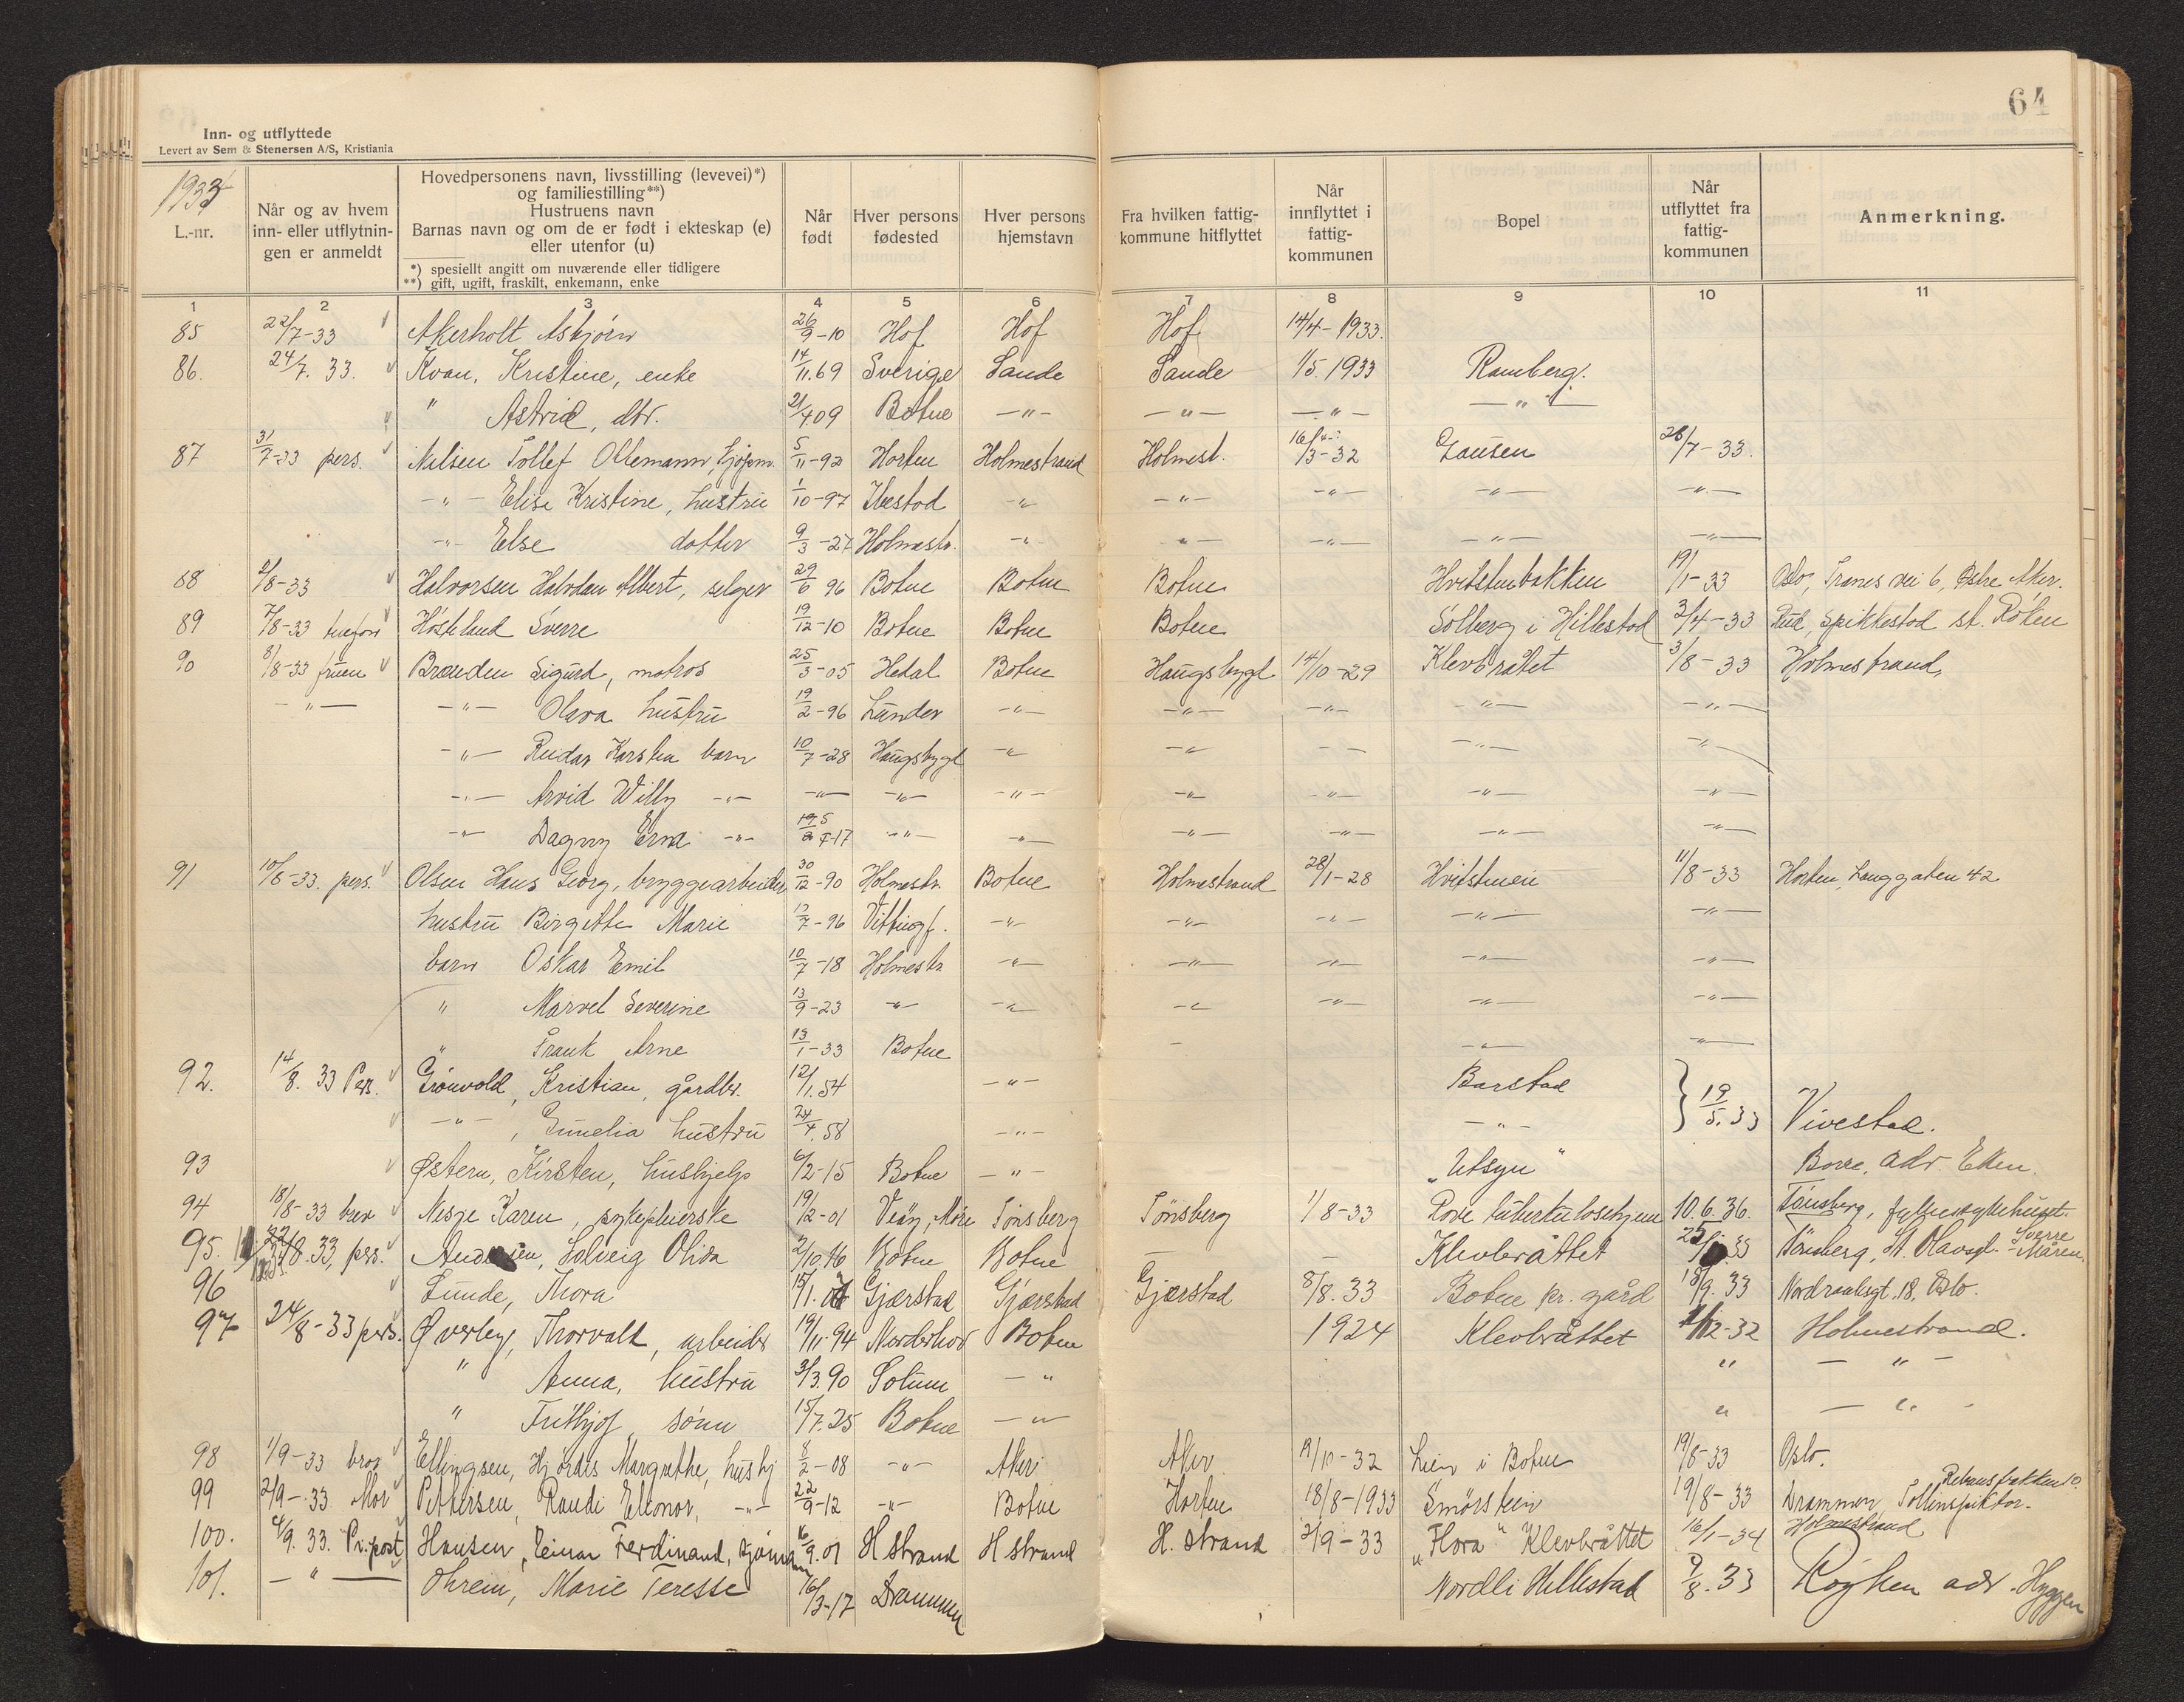 64
Inn- og utflyttede
Levert av Sem & Stenersen A/S, Kristiania
1933
L.-nr.
Når og av hvem inn- eller utflytnin-gen er anmeldt
Hovedpersonens navn, livsstilling (levevei)*)
og familiestilling**)
Hustruens navn
Barnas navn og om de er født i ekteskap (e)
eller utenfor (u)
*) spesiellt angitt om nuværende eller tidligere
**) gift, ugift, fraskilt, enkemann, enke
Når født
Hver persons fødested
Hver persons hjemstavn
Fra hvilken fattig-kommune hitflyttet
Når innflyttet i fattig-kommunen
Bopel
Når utflyttet fra fattig-kommunen
Anmerkning.
1 2 3 4 5 6 7 8 9 10 11
85 22/7-33 Akerholt Asbjørn 26/9-10 Hof Hof Hof 14/4-1933.
86. 24/7. 33. Kvan, Kristine, enke 14/11.69 Sverige Sande Sande 1/5.1933 Ramberg.
" Astrid, dtr. 21/4.09 Botne -"- -"- -"- -"-
87 31/7-33 pers. Nilsen Tollef Ollemann, sjøfm. 5/11-92 Horten Holmestrand Holmest. 16/3-32 Gausen 28/7-33.
-"- Elise Kristine, hustru 1/10-97 Ibestad -"- -"- -"- -"- -"-
-"- Else datter 9/3-27 Holmestr. -"- -"- -"- -"- -"-
88 2/8-33 Halvorsen Halvdan Albert, selger 29/6 96 Botne Botne Botne Hvitstenbakken 19/1-33 Oslo, Tranes vei 6, Østre Aker.
89 7/8-33 Høsteland Sverre 19/12-10 Botne Botne Botne Solberg i Hillestad 3/4-33 Rud, Spikkestad st. Röken
90 8/8-33 fruen Brænden Sigurd, matros 25/3-05 Hedal Botne Haugsbygd 14/10-29 Klevbråtet 3/8-33 Holmestrand,
-"- -"- Olava hustru 19/2-96 Lunder -"- -"- -"- -"- -"-
-"- Reidar Karsten barn 10/7-28 Haugsbygd -"- -"- - - -"- -"-
-"- Arvid Willy -"- -"- -"- -"- -"- -"- -"- -"-
-"- Dagny Erna -"- -"- -"- -"- -"- -"- -"-
91 10/8-33. pers. Olsen Hans Georg, bryggearbeider 30/12-90 Holmestr. Botne Holmestrand 28/1-28 Hvitstenen 11/8-33 Horten, Langgaten 42
hustru Birgitte Marie 17/7-96 Vittingf. -"- -"- -"- -"- -"-
barn Oskar Emil 10/7-18 Holmestr -"- -"- -"- -"- -"-
" Marvel Severine 13/9-23 -"- -"- -"- -"- -"- -"-
" Frank Arne 13/1-33 Botne - -"- -"-
92. 14/8. 33 Pers. Grønvold, Kristian, gårdbr. 12/1.54 -"- Barstad 19/5.33 Vivestad.
-"-, Gunelia hustru 24/4.58 -"- -"-
93 Østern, Kirsten, hushjelp 6/2-15 Botne -"- "Utsyn" Borre, adr. Eken.
94 18/8-33 brev Nesje Karen, sykepleierske 19/2-01 Veøy, Møre Tønsberg Tønsberg 1/8-33 Rove tuberkulosehjem 10.6.36. Tønsberg, fylkessykehuset.
95. 8.33, pers. Andersen, Solveig Olida 2/10.16 Botne Botne — — Klevbråttet Tønsberg, St. Olavsgt. - Sverre Måren.
96 Lunde, Thora Gjerstad Gjerstad Gjerstad 8/8.33 Botne pr. gård 18/9.33 Nordraaksgt. 18, Oslo.
97 24/8-33 pers. Øverby, Thorvald, arbeider 19/11.94 Norderhov Botne 1924 Klevbråttet 12-32 Holmestrand.
" Anna, hustru 3/3.90 Solum -"- " -"-
" Frithjof sønn 15/7.25 Botne -"- " -"-
98 1/9-33 brev Ellingsen, Hjørdis Margrethe, hushj 8/2-08 -"- Aker Aker 19/10-32 Lien i Botne 19/8-33 Oslo.
99 2/9-33 Mor Pettersen, Randi Eleonor, -"- 22/9-12 -"- Botne Horten 18/8-1933 Smørstein 19/8-33 Drammen, Tollinspektør.
100. 4/9.33. Pr. post Hansen, Einar Ferdinand, sjømann 16/9.01 H strand H strand H. strand 2/9-33 "Flora" Klevbråttet 16/1-34 Holmestrand
101. -"- Ohrein, Marie Teresse 16/3-17 Drammen Nordli Hillestad 9/8.33 Røyken adr. Hyggen